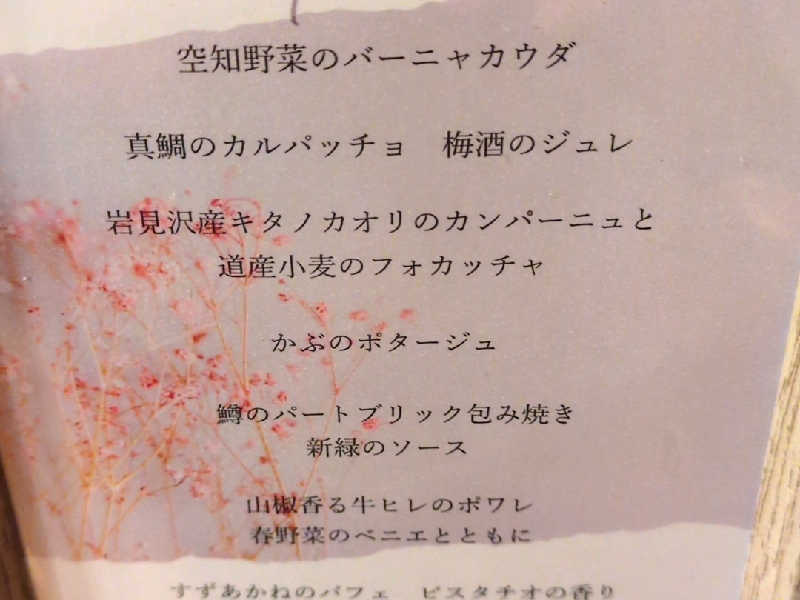 空知野菜のバーニャカウダ
真鯛のカルパッチョ　梅酒のジュレ
岩見沢産キタノカオリのカンパーニュと
道産小麦のフォカッチャ
かぶのポタージュ
鱒のパートブリック包み焼き
新緑のソース
山椒香る牛ヒレのポワレ
春野菜のベニエとともに
すずあかねのパフェ　ピスタチオの香り